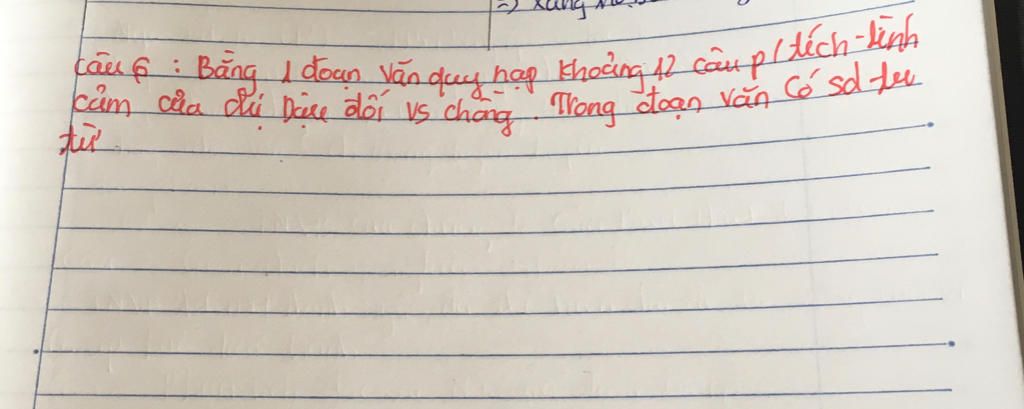 Câu 6 : Bằng 1 đoạn văn quy nạp khoảng 12 câu p/tích tình
cảm của chị Dậu đối vs chồng. Trong đoạn văn có sd
từ